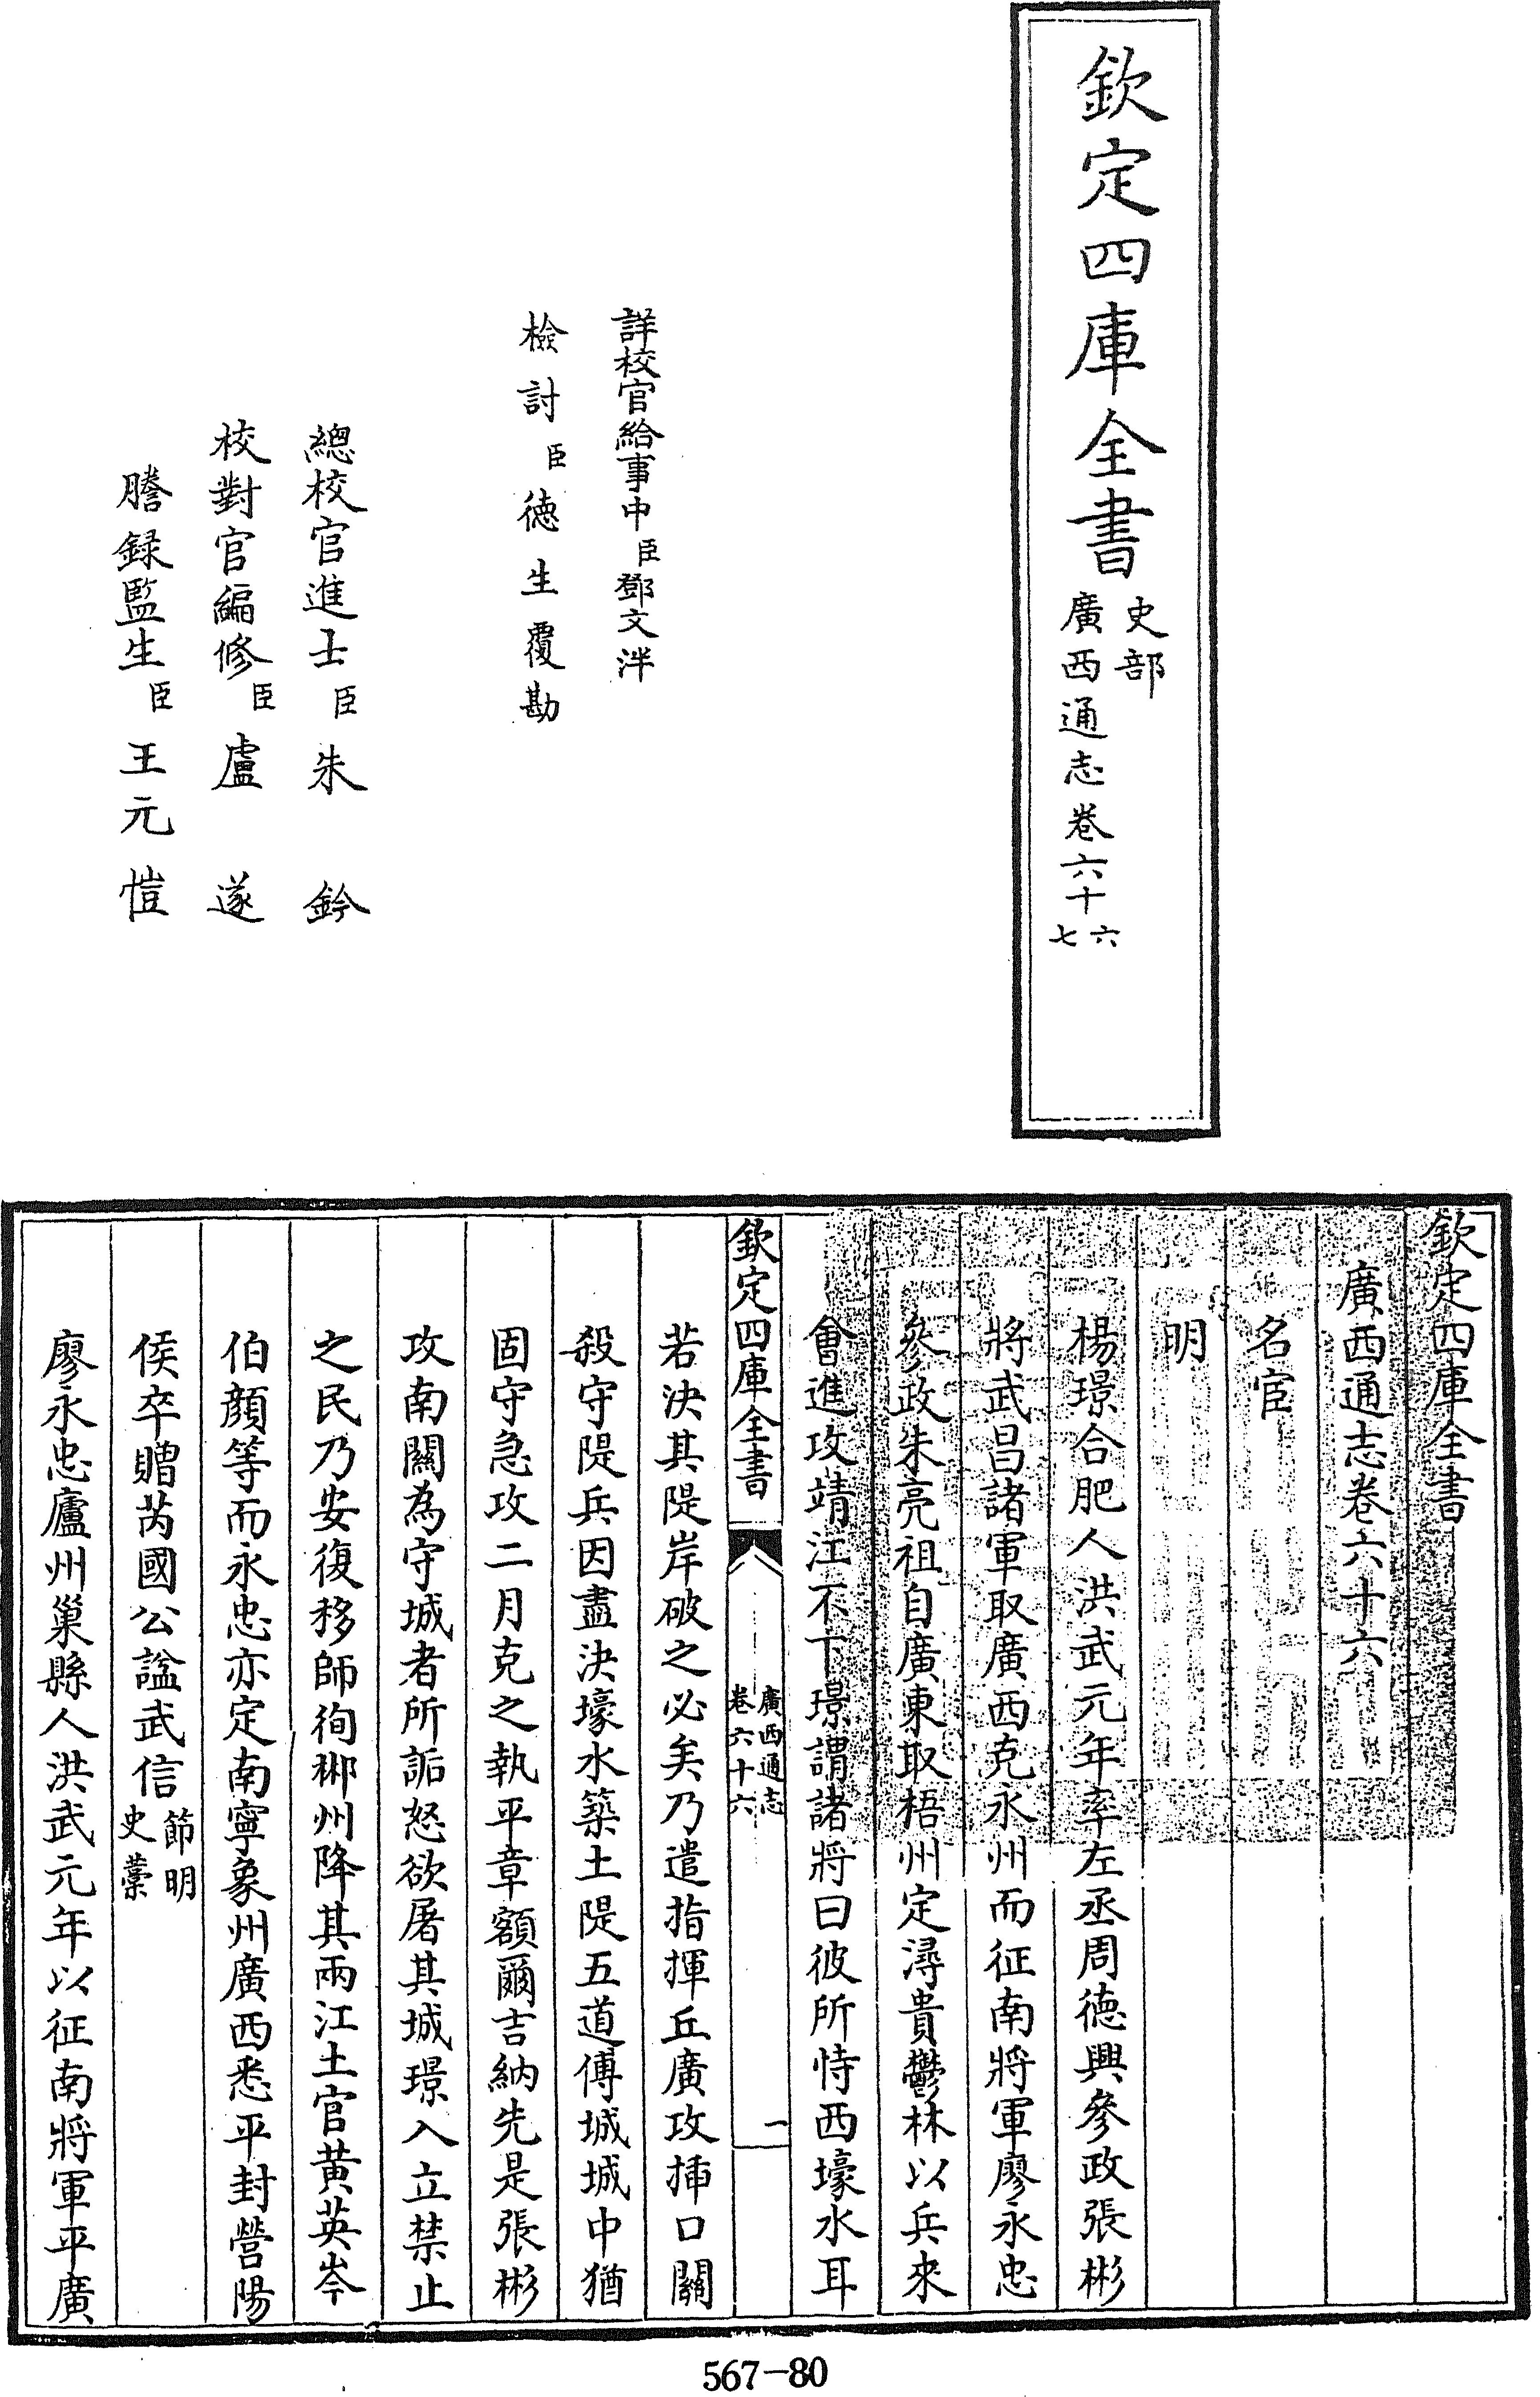 欽定四庫全書
史部
廣西通志卷六十六
七
詳校官給事中臣鄧文泮
檢討臣德生覆勘
總校官進士臣朱鈐
校對官編修臣盧遂
謄録監生臣王元愷
欽定四庫全書
廣西通志卷六十六
名宦
明
楊璟合肥人洪武元年率左丞周德興參政張彬
將武昌諸軍取廣西克永州而征南將軍廖永忠
參政朱亮祖自廣東取梧州定潯貴鬱林以兵來
會進攻靖江不下璟謂諸將曰彼所恃西壕水耳
欽定四庫全書
廣西通志
卷六十六
一
若決其隄岸破之必矣乃遣指揮丘廣攻揷口關
殺守隄兵因盡決壕水築土隄五道傅城城中猶
固守急攻二月克之執平章額爾吉納先是張彬
攻南關為守城者所詬怒欲屠其城璟入立禁止
之民乃安復移師徇郴州降其兩江土官黄英岑
伯顔等而永忠亦定南寧象州廣西悉平封營陽
侯卒贈芮國公諡武信節明史藁
廖永忠廬州巢縣人洪武元年以征南將軍平廣
567-80